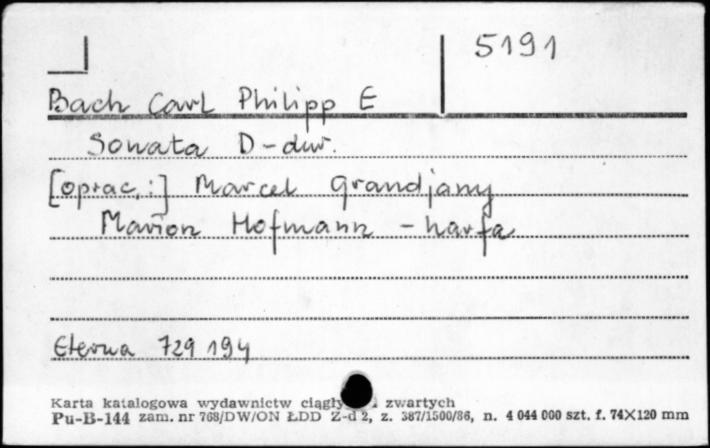 5191
Bach Carl Philipp E
Sonata D-dur.
[oprac.:] Marcel Grandjany
Marion Hofmann - harfa
Eterna 729 194
Karta katalogowa wydawnictw ciągły zwartych
Pu-B-144 zam. nr 768/DW/ON ŁDD Z-d 2, z. 387/1500/86, n. 4 044 000 szt. f. 74X120 mm